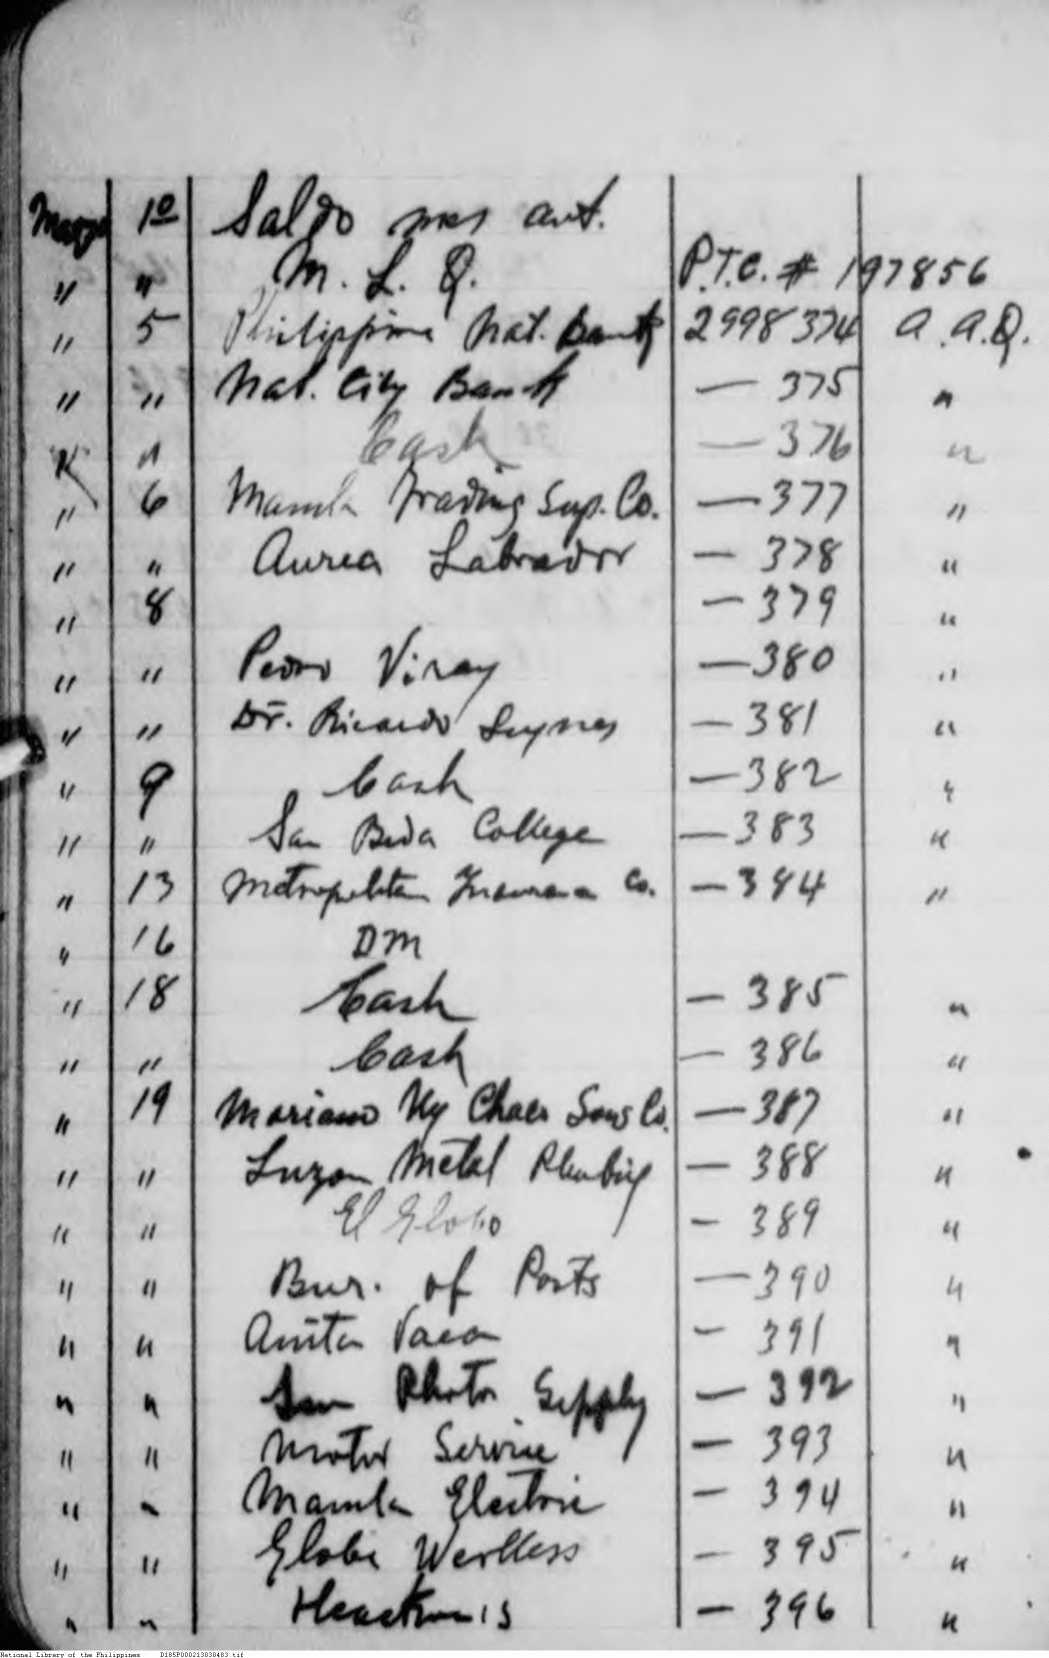 Marzo 10 Saldo mes ant.
" " M. L. Q. P.T.C. # 197856
" 5 Philippine Nat. Bank 2998374 A.A.Q.
" " Nat. City Bank — 375 "
" " Cash — 376 "
" 6 Manila Trading Sup. Co. — 377 "
" " Aurea Labrador — 378 "
" 8 — 379 "
" " Pedro Viray — 380 "
" " Dr. Ricardo — 381 "
" 9 Cash — 382 "
" " San Beda College — 383 "
" 13 Metropolitan Insurance Co. — 384 "
" 16 DM
" 18 Cash — 385 "
" " Cash — 386 "
" 19 Mariano Uy Chaco Sons Co. — 387 "
" " Luzon Metal Plumbing — 388 "
" " El Globo — 389 "
" " Bur. of Posts — 390 "
" " Anita Vaca — 391 "
" " Photo Supply — 392 "
" " Motor Service — 393 "
" " Manila Electric — 394 "
" " Globe Werlless — 395 "
" " Heacock's — 396 "
National Library of the Philippines D185P000213838483.tif